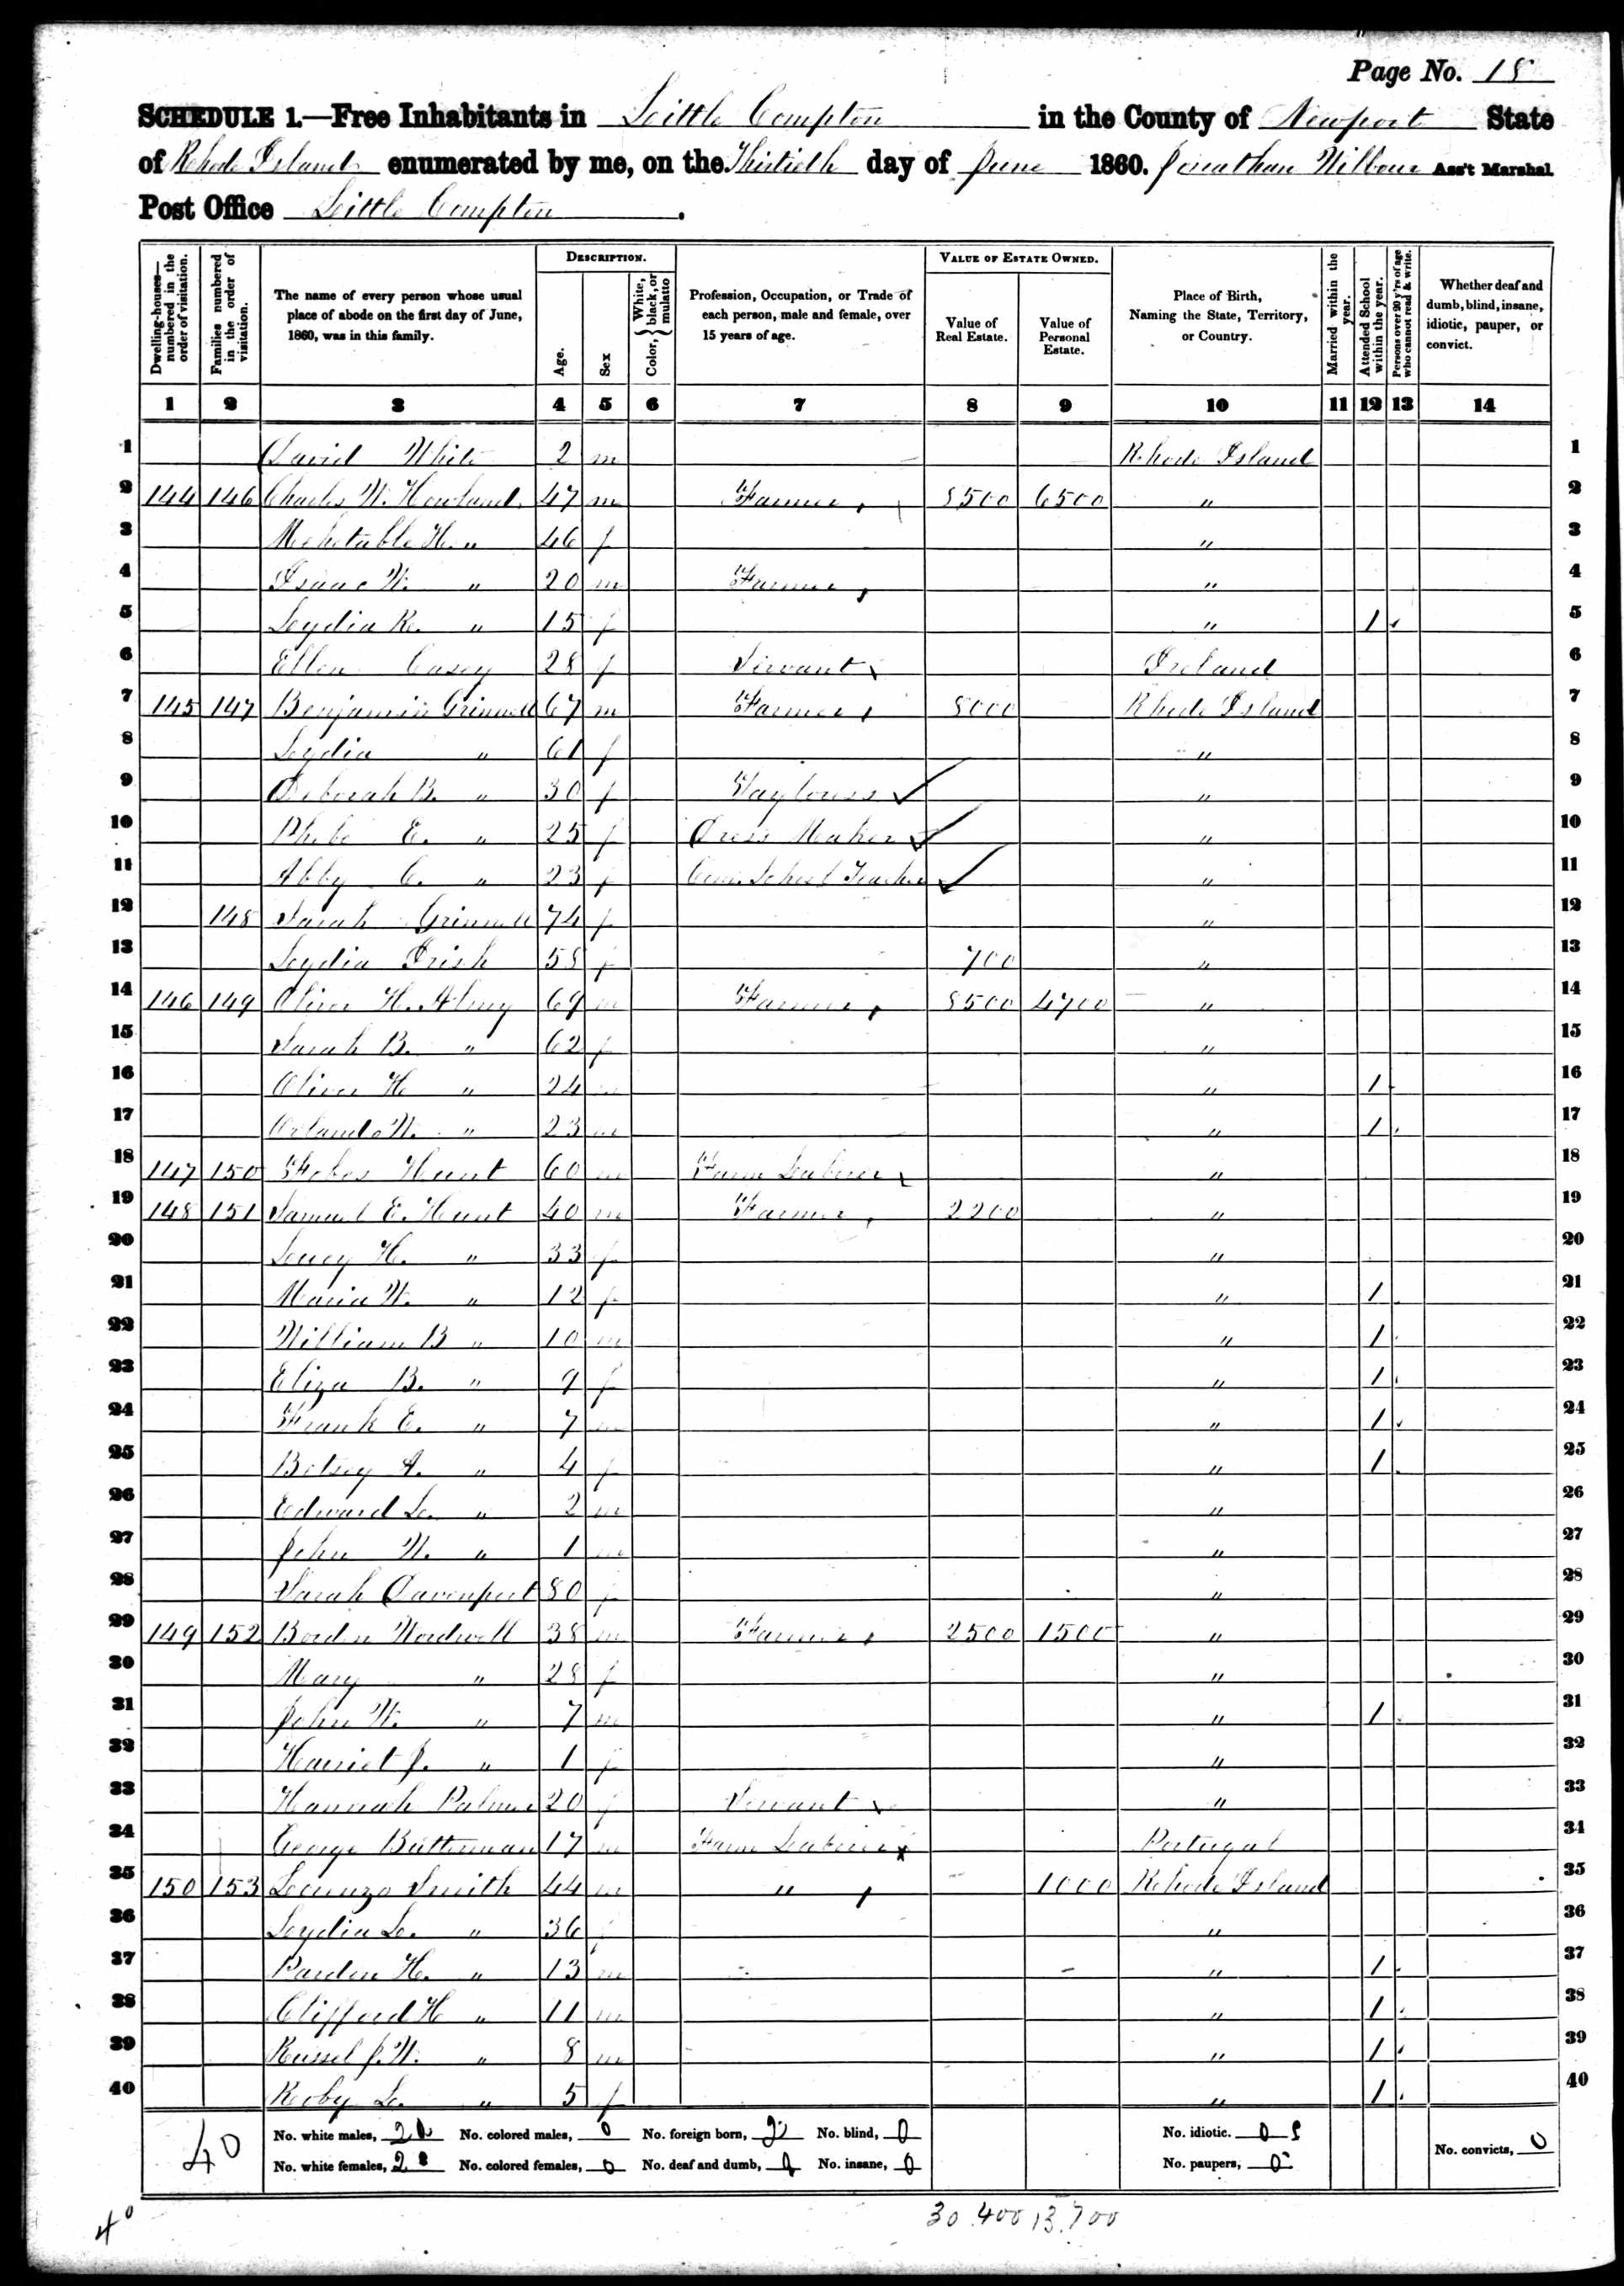 Page No. 18
SCHEDULE 1.—Free Inhabitants in Little Compton in the County of Newport State
of Rhode Island enumerated by me, on the Thirtieth day of June 1860. Jonathan Wilbour Ass't Marshal.
Post Office Little Compton.
Dwelling-houses—numbered in the order of visitation.
Families numbered in the order of visitation.
The name of every person whose usual place of abode on the first day of June, 1860, was in this family.
DESCRIPTION.
Age.
Sex
Color, { White, black, or mulatto
Profession, Occupation, or Trade of each person, male and female, over 15 years of age.
VALUE OF ESTATE OWNED.
Value of Real Estate.
Value of Personal Estate.
Place of Birth, Naming the State, Territory, or Country.
Married within the year.
Attended School within the year.
Persons over 20 y'rs of age who cannot read & write.
Whether deaf and dumb, blind, insane, idiotic, pauper, or convict.
1 2 3 4 5 6 7 8 9 10 11 12 13 14
1 David White 2 m Rhode Island 1
2 144 146 Charles W. Howland 47 m Farmer, 8500 6500 " 2
3 Mehetable H. " 46 f " 3
4 Isaac W. " 20 m Farmer, " 4
5 Lydia R. " 15 f " 1 5
6 Ellen Casey 28 f Servant Ireland 6
7 145 147 Benjamin Grinnell 67 m Farmer, 8000 Rhode Island 7
8 Lydia " 61 f " 8
9 Deborah B. " 30 f Tayloress ✓ " 9
10 Phebe E. " 25 f Dress Maker ✓ " 10
11 Abby C. " 23 f Com. School Teacher ✓ " 11
12 148 Sarah Grinnell 74 f " 12
13 Lydia Irish 58 f 700 " 13
14 146 149 Oliver H. Almy 69 m Farmer, 8500 4700 " 14
15 Sarah B. " 62 f " 15
16 Oliver H. " 24 m " 1 16
17 Orlando W. " 23 m " 1 17
18 147 150 Fobes Hunt 60 m Farm Laborer " 18
19 148 151 Samuel E. Hunt 40 m Farmer, 2200 " 19
20 Lucy H. " 33 f " 20
21 Maria W. " 12 f " 1 21
22 William B " 10 m " 1 22
23 Eliza B. " 9 f " 1 23
24 Frank E. " 7 m " 1 24
25 Betsey A. " 4 f " 1 25
26 Edward L. " 2 m " 26
27 John W. " 1 m " 27
28 Sarah Davenport 80 f " 28
29 149 152 Borden Wordwell 38 m Farmer, 2500 1500 " 29
30 Mary " 28 f " 30
31 John W. " 7 m " 1 31
32 Harriet J. " 1 f " 32
33 Hannah Palmer 20 f Servant " 33
34 George Butterman 17 m Farm Laborer x Portugal 34
35 150 153 Lorenzo Smith 44 m " , 1000 Rhode Island 35
36 Lydia L. " 36 f " 36
37 Parden H. " 13 m " 1 37
38 Clifford H " 11 m " 1 38
39 Russel J. W. " 8 m " 1 39
40 Roby L. " 5 f " 1 40
40
No. white males, 20 No. colored males, 0 No. foreign born, 2 No. blind, 0 No. idiotic. 0
No. white females, 20 No. colored females, 0 No. deaf and dumb, 0 No. insane, 0 No. paupers, 0 No. convicts, 0
30.400 13.700
40